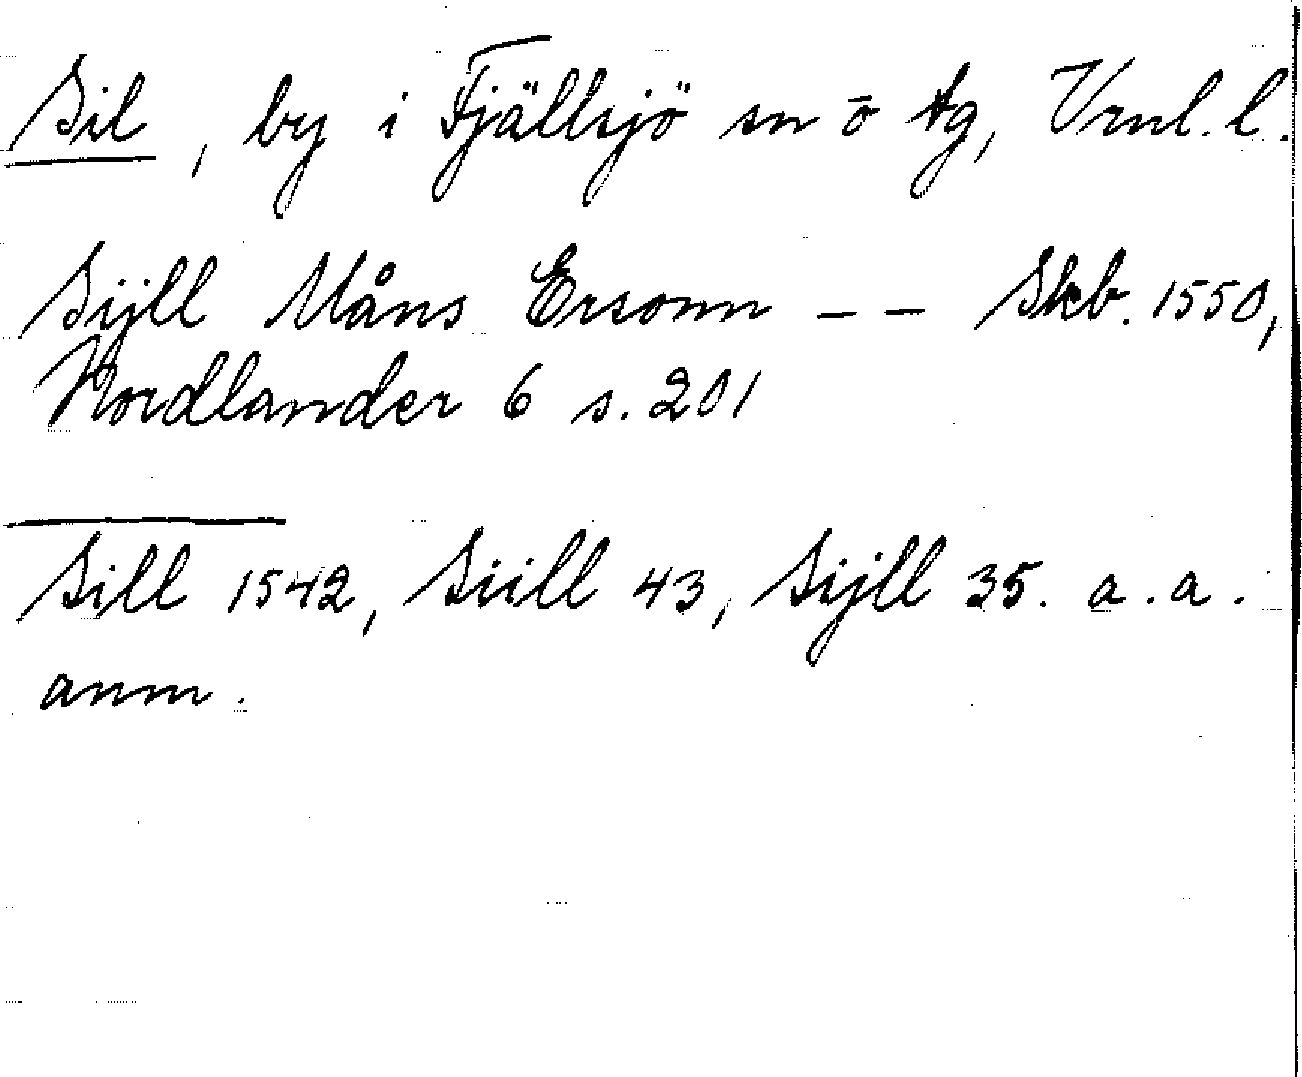 Sil, by i Fjällsjö sn ō tg, Vrnl. l.
Sijll Måns Ersonn – – Skb. 1550,
Nordlander 6 s. 201
Sill 1542, Siill 43, Sijll 35. a. a.
anm.